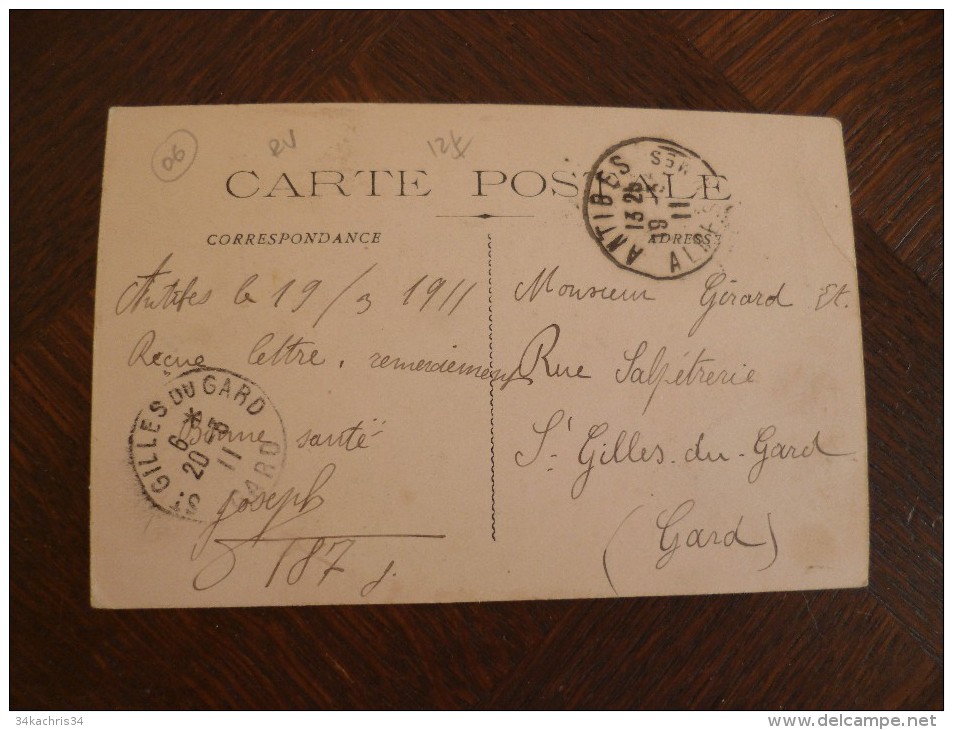 06
RV
CARTE POSTALE
CORRESPONDANCE
ADRESSE
ANTIBES
13 25
19 3
11
ALPES
Antibes le 19/3 1911
Reçue lettre, remerciement
Bonne santé
Joseph
187 j.
Monsieur Gérard Et.
Rue Salpétrerie
St Gilles-du-Gard
(Gard)
ST GILLES DU GARD
6
20 3
11
GARD
34kachris34
www.delcampe.net